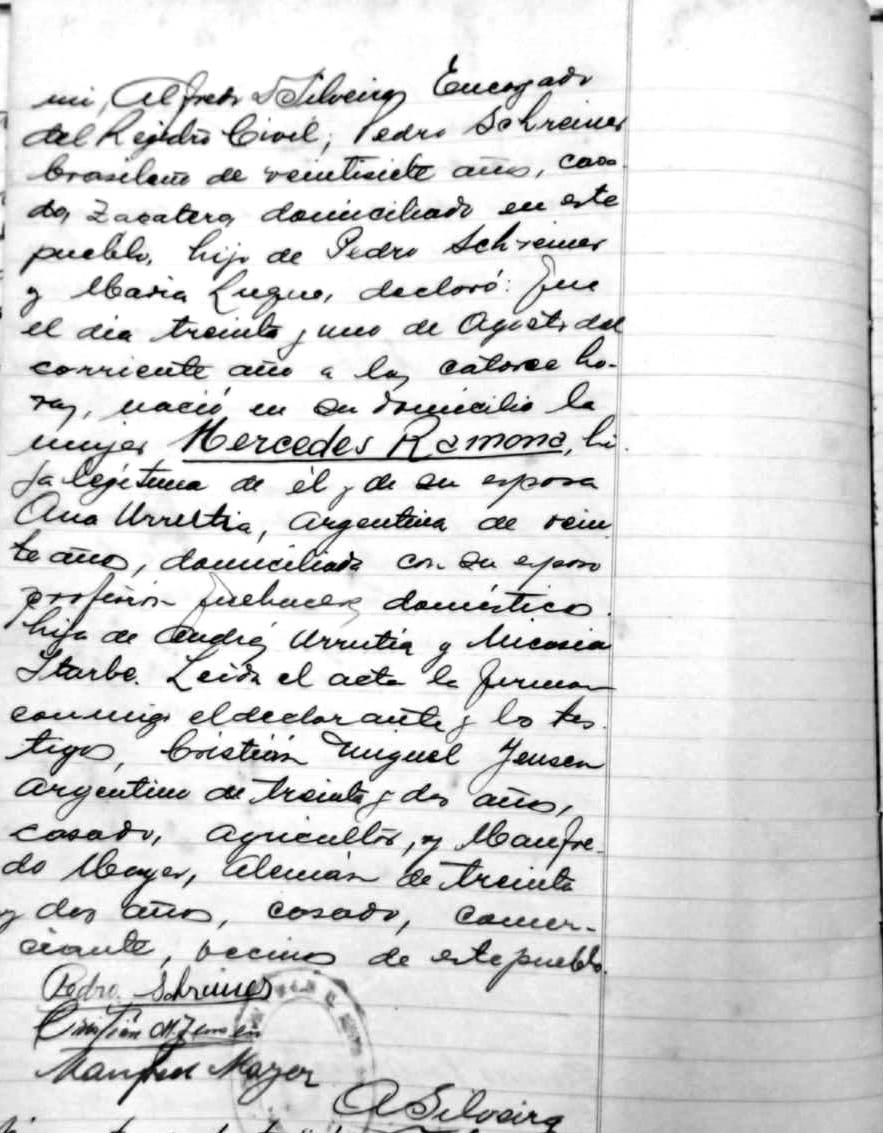 mi, Alfredo Silveira, Encargado
del Registro Civil; Pedro Schreiner
brasileño de veintisiete años, casa
do, Zapatero, domiciliado en este
pueblo, hijo de Pedro Schreiner
y Maria Luque, declaró: Que
el dia treinta y uno de Agosto del
corriente año a las catorce ho-
ras, nació en su domicilio la
mujer Mercedes Ramona, hi-
ja legitima de él y de su esposa
Ana Urrutia, argentina de vein
te años, domiciliada con su esposo
profesión quehaceres domésticos.
hija de Andrés Urrutia y Nicasia
Iturbe. Leida el acta la firman
conmigo el declarante y los tes-
tigos, Cristián Miguel Jensen
argentino de treinta y dos años,
casado, agricultor, y Manfre-
do Mayer, Alemán de treinta
y dos años, casado, comer-
ciante, vecinos de este pueblo.
Pedro Schreiner
Cristián M. Jensen
Manfred Mayer
A Silveira